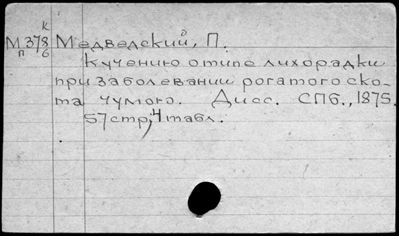 К
М 378 Медведский, П.
п 6
К учению о типе лихорадки
при заболевании рогатого ско-
та чумою. Дисс. СПб., 1875.
57 стр, 4 табл.